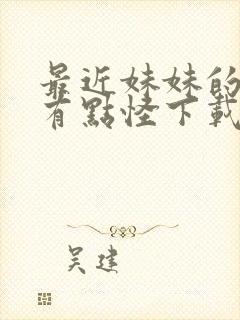 最近妹妹的
有點怪下載
吴建